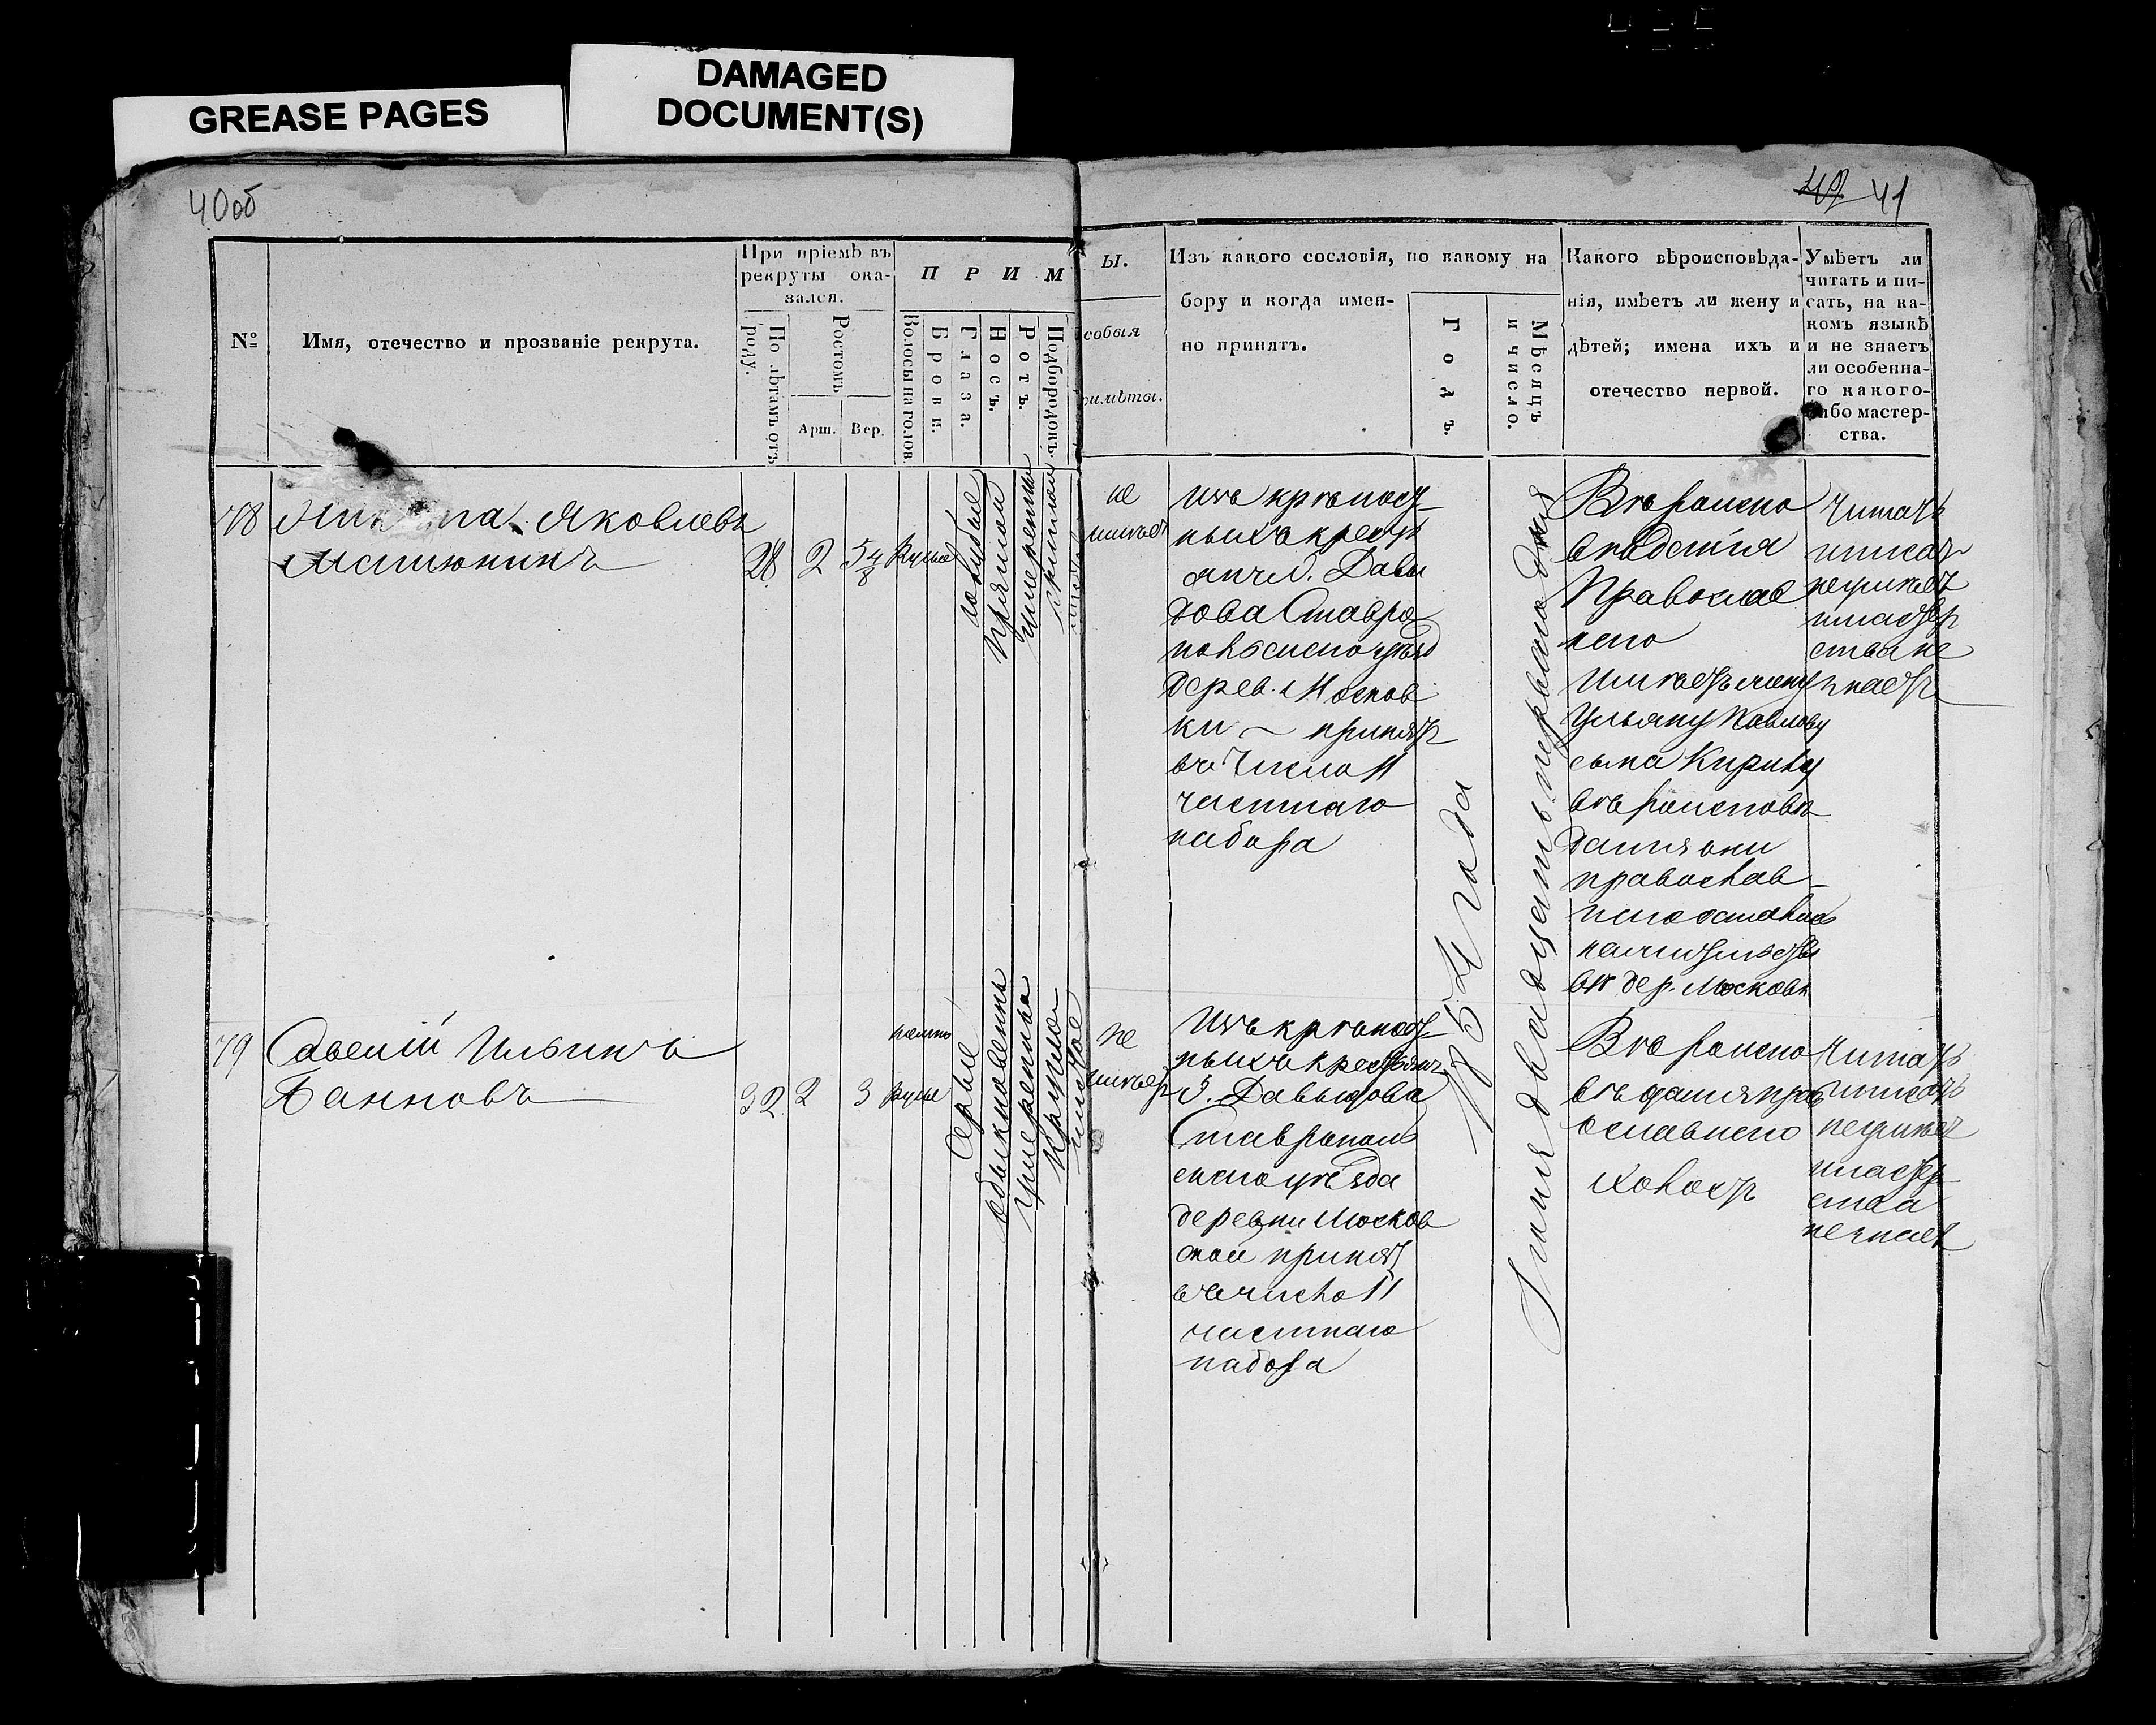 GREASE PAGES
DAMAGED
DOCUMENT(S)
40об
41
№
Имя, отечество и прозваніе рекрута.
При пріемѣ въ
рекруты ока-
зался.
По лѣтамъ отъ
роду.
Ростомъ
Арш.
Вер.
П Р И М
Волосы на голов.
Брови.
Глаза.
Носъ.
Ротъ.
Подбородокъ.
Ы.
собыя
имѣты.
Изъ какого сословія, по какому на
бору и когда имен-
но принятъ.
Годъ.
Мѣсяцъ
и число.
Какого вѣроисповѣда-
нія, имѣетъ ли жену и
дѣтей; имена ихъ и
отечество первой.
Умѣетъ ли
читать и пи-
сать, на ка-
комъ языкѣ
и не знаетъ
ли особенна-
го какого-
либо мастер-
ства.
78
Никита Яковлевъ
28
2
5 4/8
Русые
голубые
прямой
умеренный
круглой
не
имѣет
изъ крѣпост
ныхъ крест
янъ Г. Давы
дова Ставро
польскаго уѣзд
дерев. Москов
ки принятъ
въ число 11
частнаго
набора
1854 года
Іюня двадцать перваго дня
Вѣроиспо
вѣданія
Православ
наго
имѣетъ жену
Ульяну Павлову
сына Кирилу
вѣроисповѣ
данія они
православ
наго
въ дер. Московк
Читать
писать
неумѣет
мастер
ства не
знаетъ
79
Савелій Ильинъ
Банновъ
32
2
3
русые
Серые
обыкновенный
умеренный
круглой
чистое
не
имѣет
Изъ крѣпост
ныхъ крестьянъ
Г. Давыдова
Ставрополь
скаго уѣзда
деревни Москов
кой принят
въ число 11
частнаго
набора
Вѣроиспо
вѣданія прав
ославнаго
холостъ
Читать
писать
неумѣет
мастер
ства
незнает